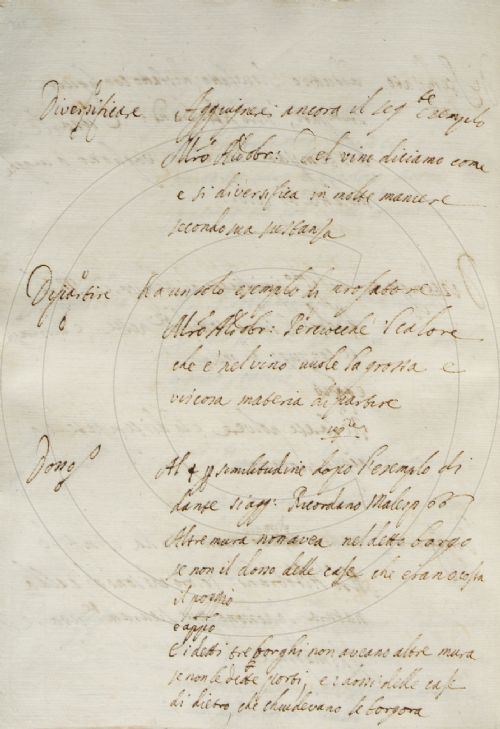 Diversificare Aggiugnere ancora il seg.te esempio
M.ro Aldobr: Del vino diciamo come
e si diversifica in molte maniere
secondo sua sustanza
Dispartire Ha un solo esempio di prosatore
M.ro Aldobr: Percioche 'l calore
che è nel vino vuole la grossa e
viscosa materia dispartire
Dosso Al § p similitudine dopo l'esempio di
Dante si agg: Ricordano Malesp. 66
Altre mura non avea nel detto borgo
se non il dosso delle case che eran costa
E i detti tre borghi non aveano altre mura
se non le dette porti, e i dossi delle case
di dietro, che chiudevano le borgora